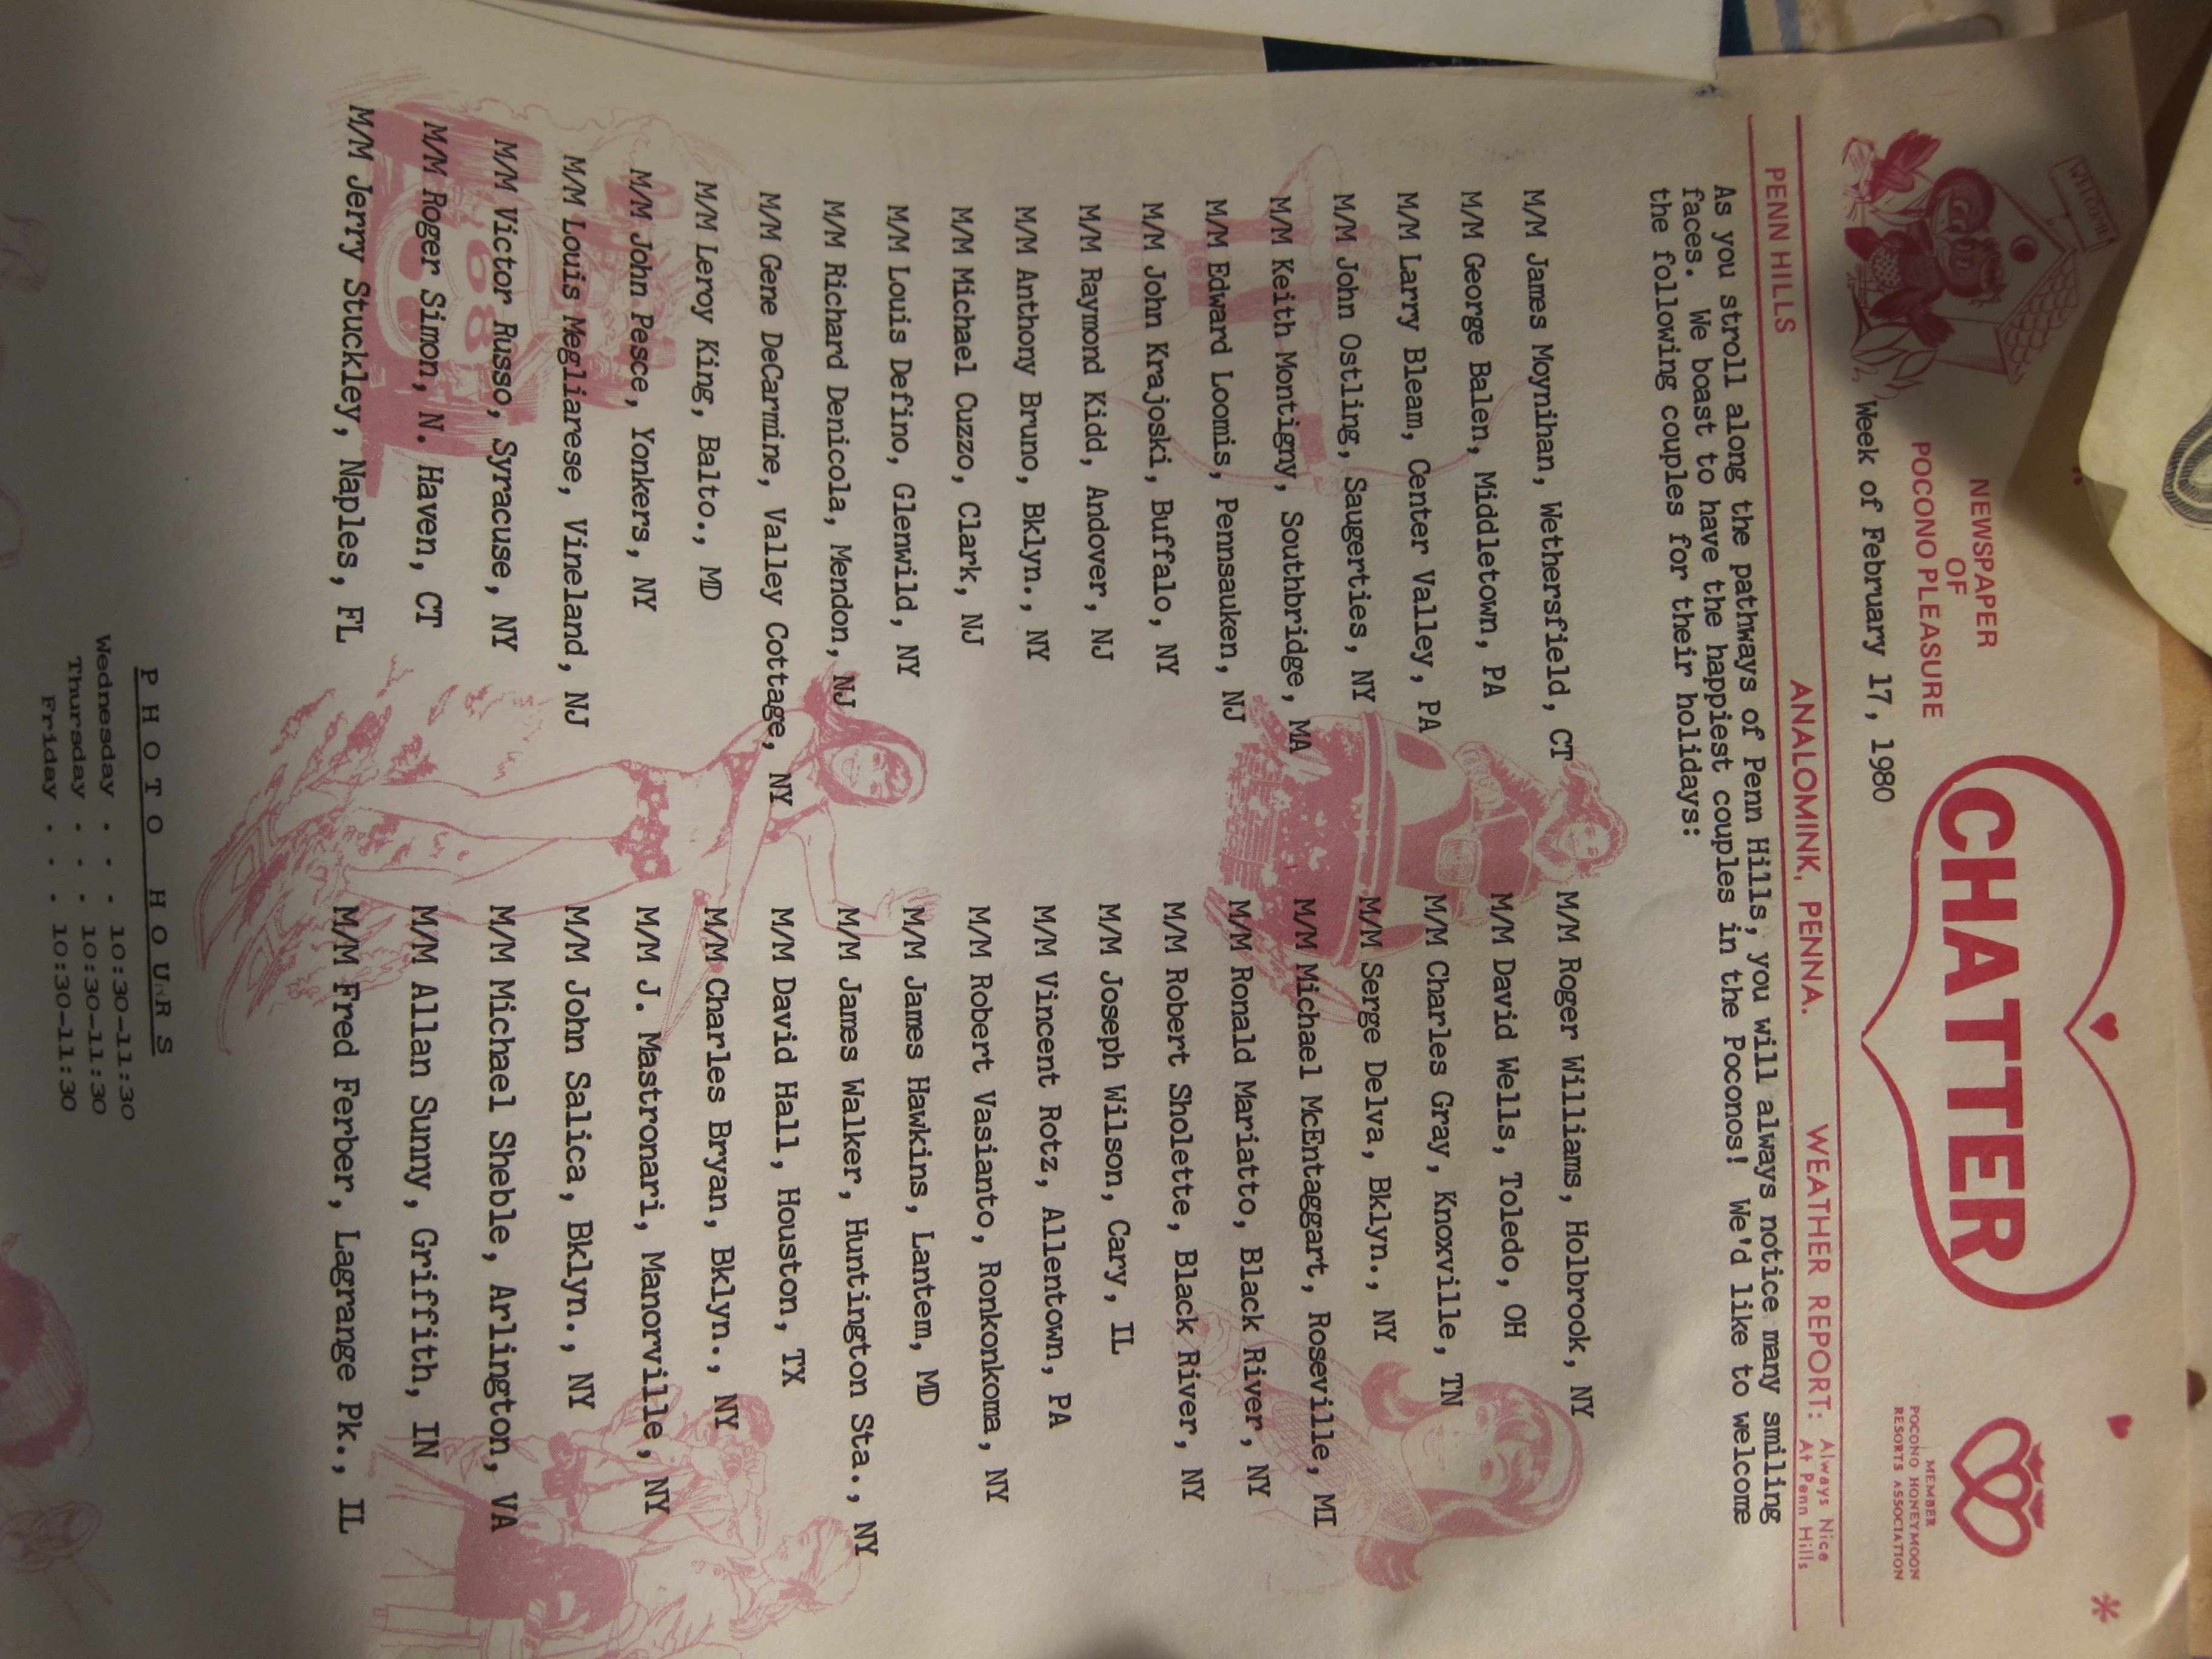 WELCOME
NEWSPAPER
OF
POCONO PLEASURE
CHATTER
MEMBER
POCONO HONEYMOON
RESORTS ASSOCIATION
Week of February 17, 1980
PENN HILLS ANALOMINK, PENNA. WEATHER REPORT: Always Nice
At Penn Hills
As you stroll along the pathways of Penn Hills, you will always notice many smiling
faces. We boast to have the happiest couples in the Poconos! We'd like to welcome
the following couples for their holidays:
M/M James Moynihan, Wethersfield, CT
M/M George Balen, Middletown, PA
M/M Larry Bleam, Center Valley, PA
M/M John Ostling, Saugerties, NY
M/M Keith Montigny, Southbridge, MA
M/M Edward Loomis, Pennsauken, NJ
M/M John Krajoski, Buffalo, NY
M/M Raymond Kidd, Andover, NJ
M/M Anthony Bruno, Bklyn., NY
M/M Michael Cuzzo, Clark, NJ
M/M Louis Defino, Glenwild, NY
M/M Richard Denicola, Mendon, NJ
M/M Gene DeCarmine, Valley Cottage, NY
M/M Leroy King, Balto., MD
M/M John Pesce, Yonkers, NY
M/M Louis Megliarese, Vineland, NJ
M/M Victor Russo, Syracuse, NY
M/M Roger Simon, N. Haven, CT
M/M Jerry Stuckley, Naples, FL
M/M Roger Williams, Holbrook, NY
M/M David Wells, Toledo, OH
M/M Charles Gray, Knoxville, TN
M/M Serge Delva, Bklyn., NY
M/M Michael McEntaggart, Roseville, MI
M/M Ronald Mariatto, Black River, NY
M/M Robert Sholette, Black River, NY
M/M Joseph Wilson, Cary, IL
M/M Vincent Rotz, Allentown, PA
M/M Robert Vasianto, Ronkonkoma, NY
M/M James Hawkins, Lantem, MD
M/M James Walker, Huntington Sta., NY
M/M David Hall, Houston, TX
M/M Charles Bryan, Bklyn., NY
M/M J. Mastronari, Manorville, NY
M/M John Salica, Bklyn., NY
M/M Michael Sheble, Arlington, VA
M/M Allan Sunny, Griffith, IN
M/M Fred Ferber, Lagrange Pk., IL
68
PHOTO HOURS
Wednesday . . . 10:30-11:30
Thursday . . . 10:30-11:30
Friday . . . 10:30-11:30